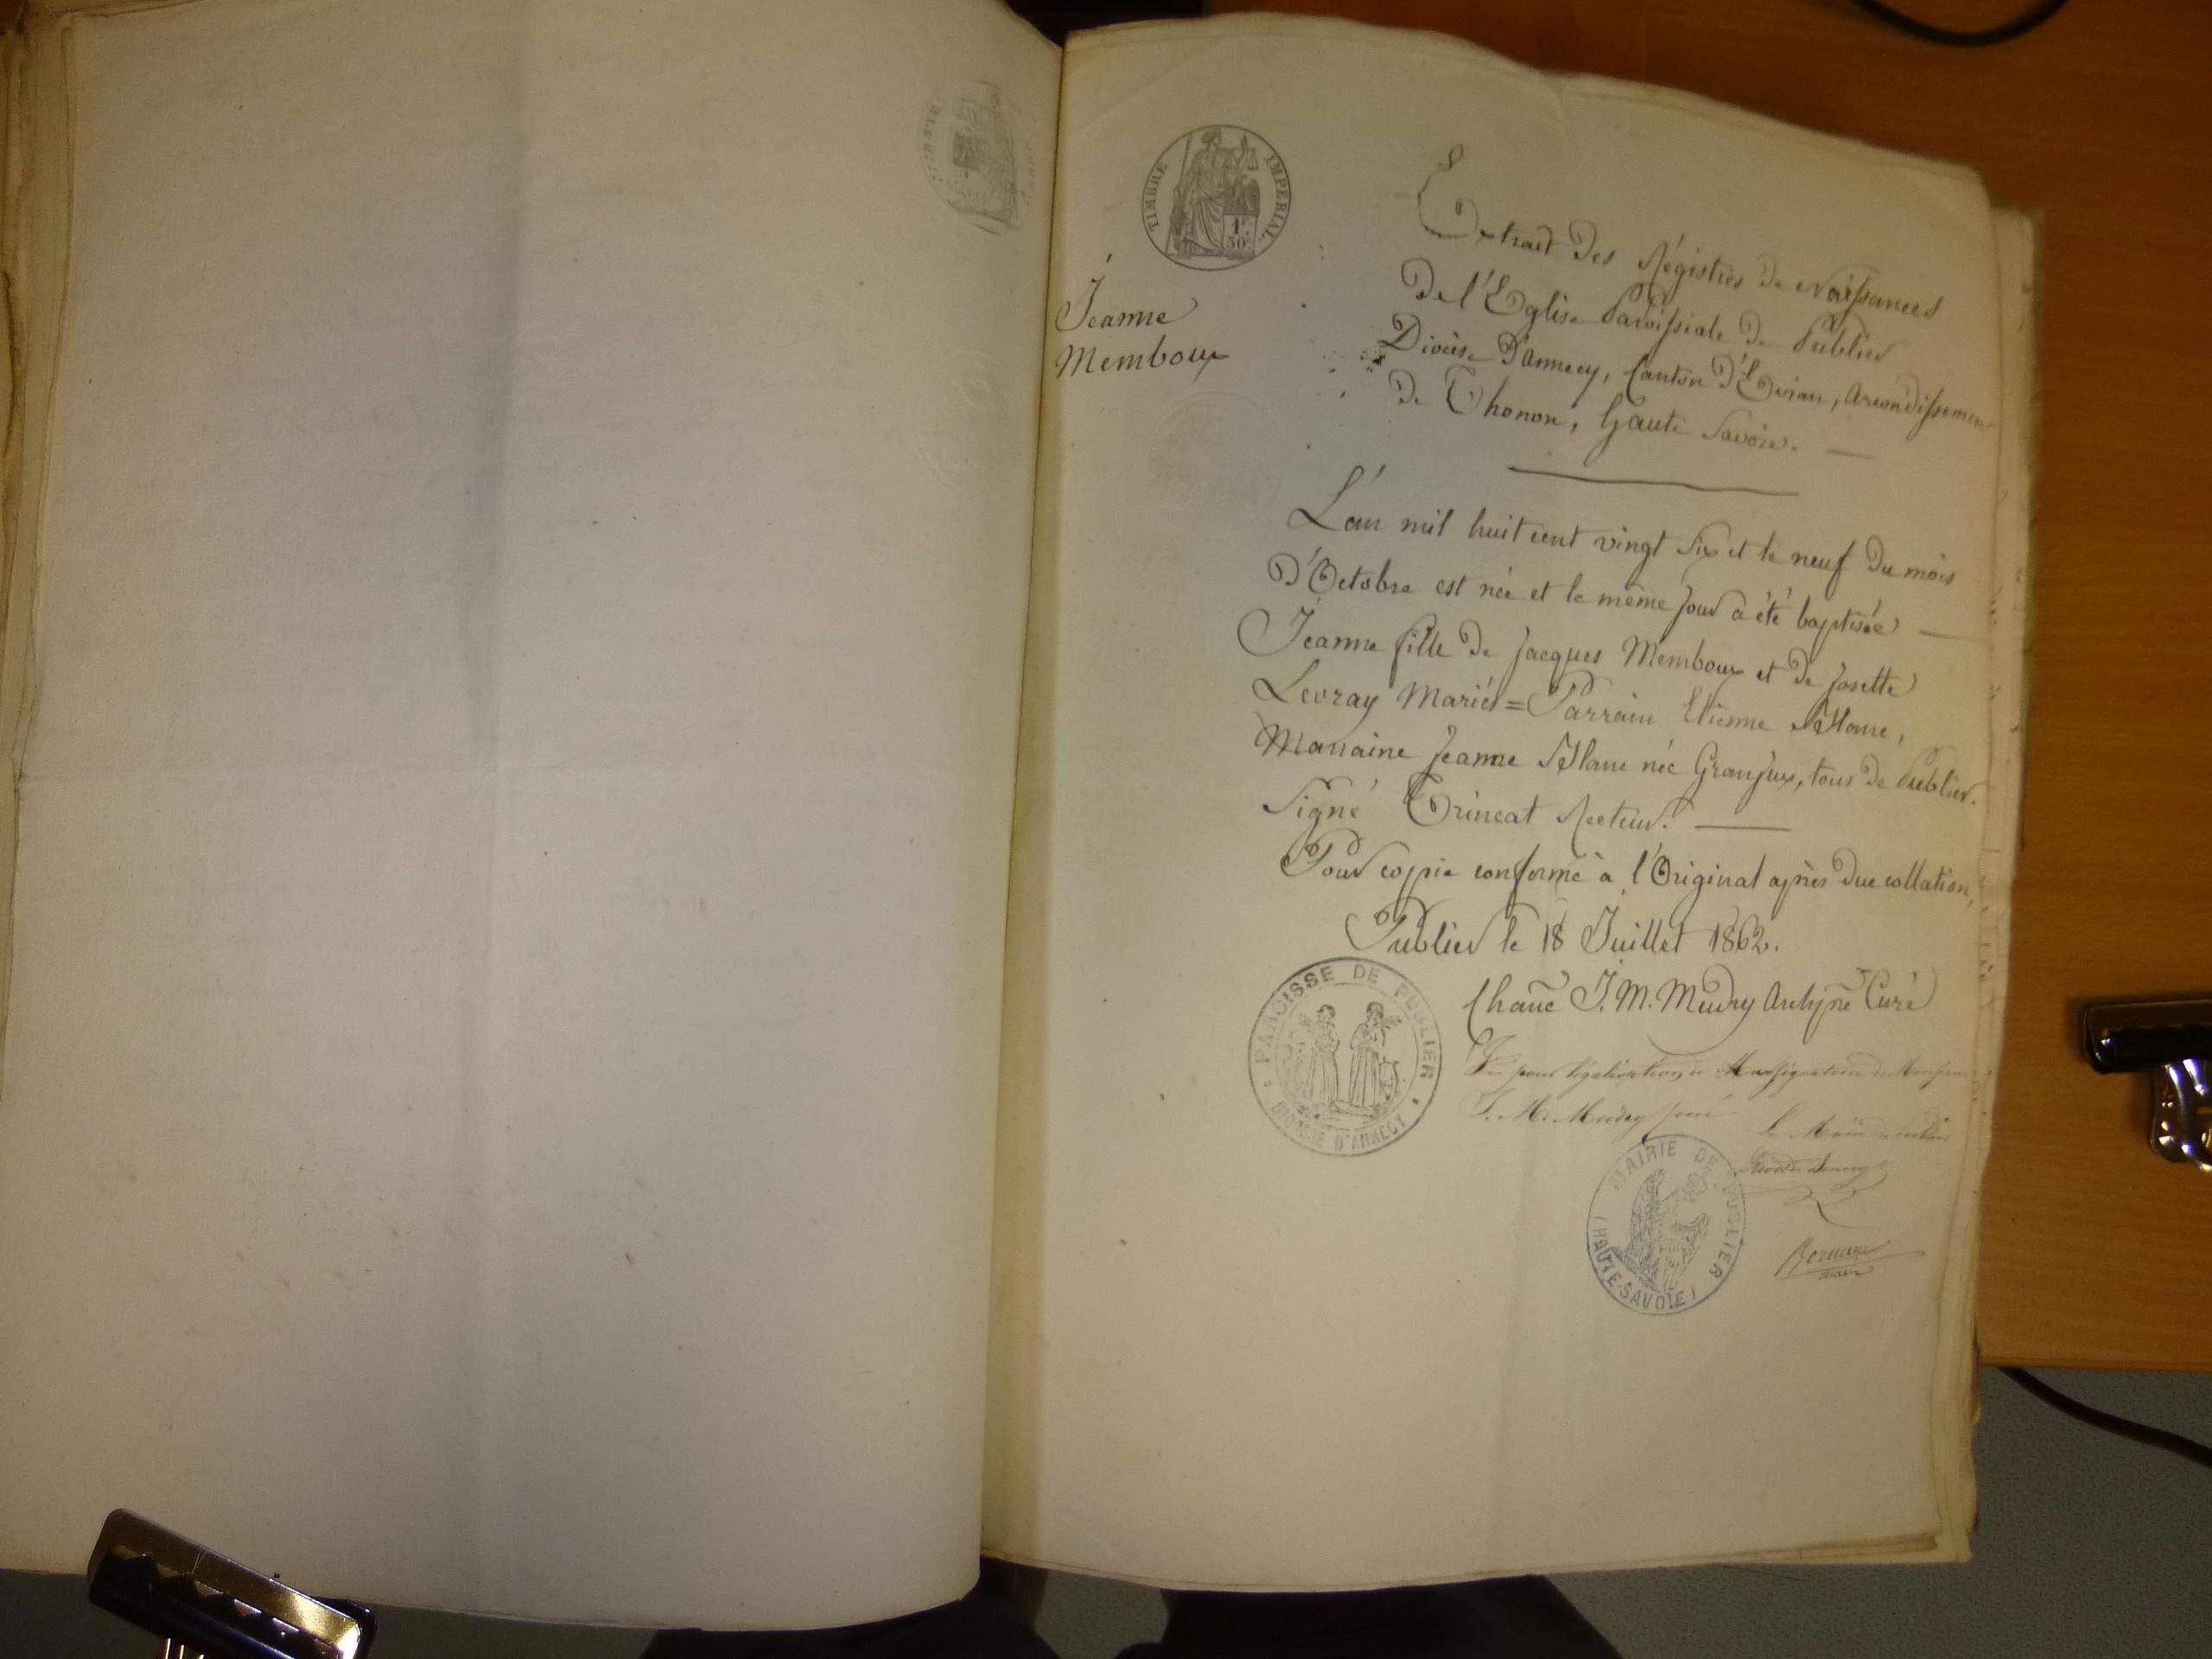 TIMBRE IMPERIAL
1F. 50C.
Jeanne
Memboux
Extrait des Régistres de Naissances
De l'Eglise Paroissiale de Publier
Diocèse D'Annecy, Canton D'Evian, Arrondissement
De Thonon, Haute Savoie.
L'an mil huit cent vingt six et le neuf du mois
D'Octobre est née et le même jour a été baptisée
Jeanne fille de Jacques Memboux et de Josette
Levray Mariés = Parrain Etienne Blanc,
Marraine Jeanne Blanc née Granjux, tous de Publier.
Signé Trincat Recteur.
Pour copie conforme à l'Original après due collation,
Publier le 18 Juillet 1862.
Chanē J. M. Mudry Archiprē Curé
PAROISSE DE PUBLIER
DIOCESE D'ANNECY
Vu pour légalisation de la signature de Monsieur
J. M. Mudry curé
Le Maire de Publier
MAIRIE DE PUBLIER
(HAUTE-SAVOIE)